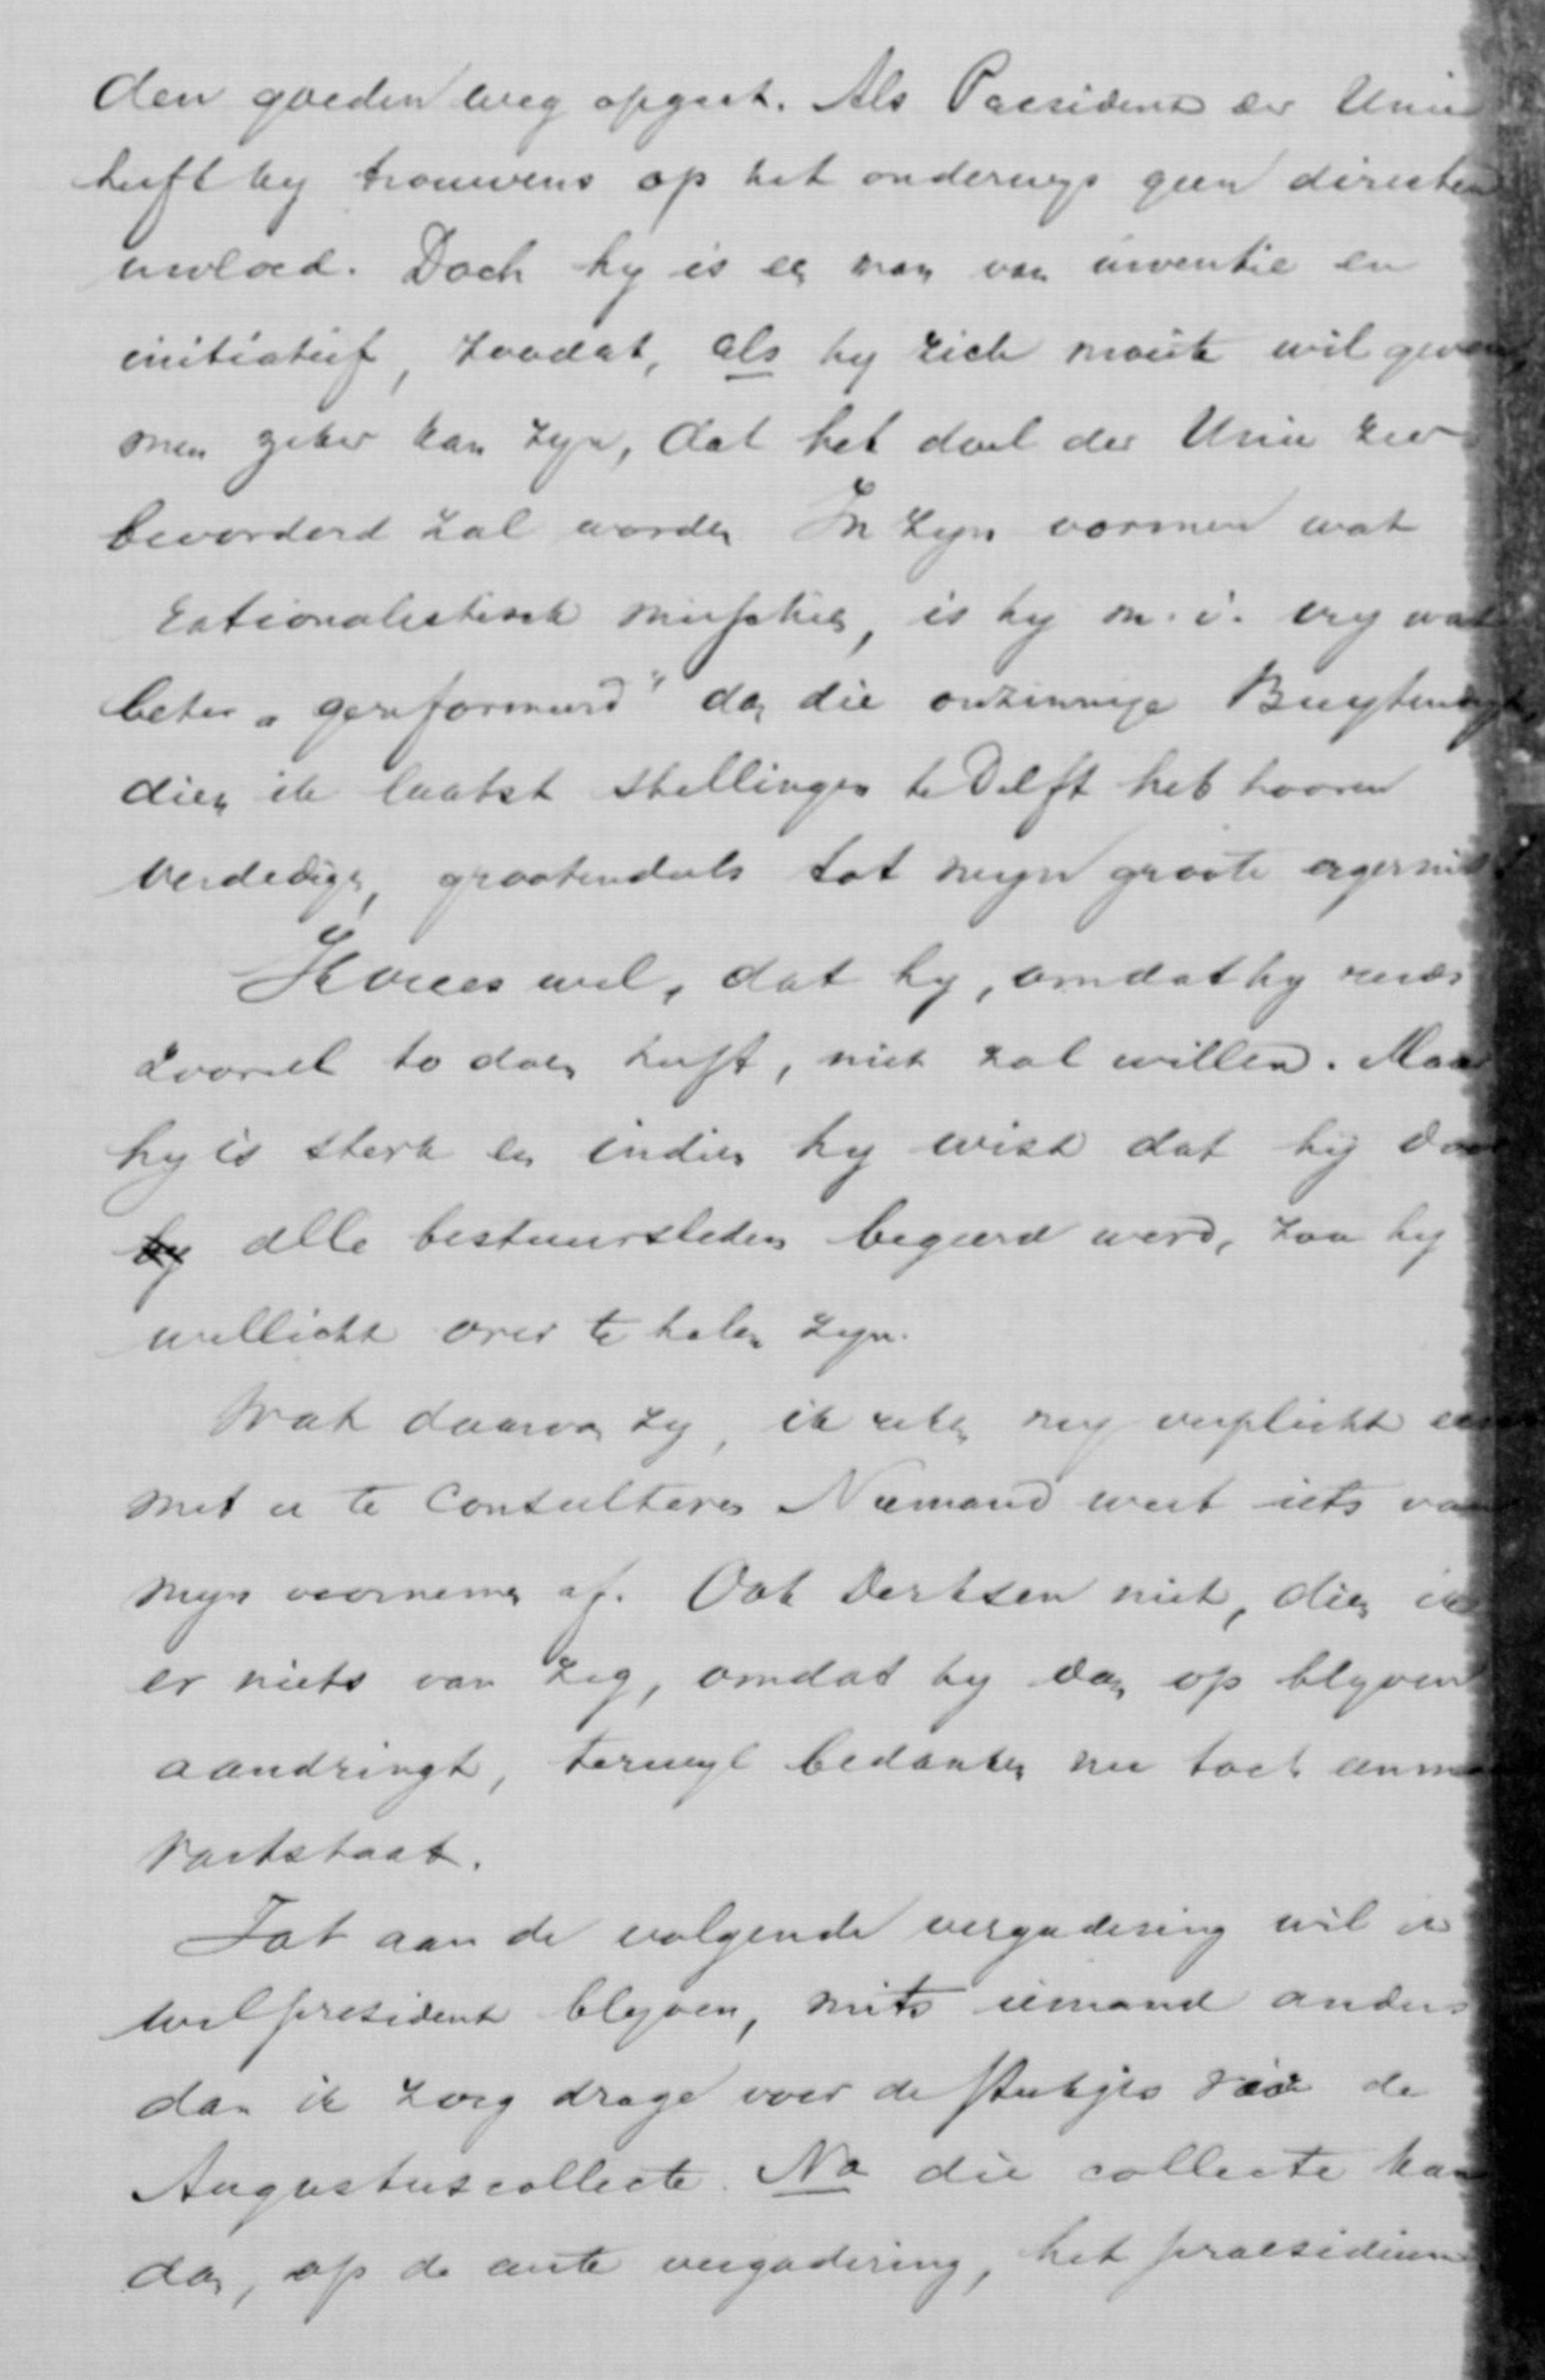 den goeden weg opgaat. Als Praesident der Unie
heeft hy trouwens op het onderwys geen directen
invloed. Doch hy is een man van inventie en
initiatief, zoodat, als hy zich moeite wil geven,
men zeker kan zyn, dat het doel der Unie zeer
bevorderd zal worden In zyn vormen wat
rationalistisch misschien, is hy m.i. vry wat
beter „gereformeerd" dan die onzinnige Buytendyk,
dien ik laatst stellingen te Delft heb hooren
verdedigen, grootendeels tot myn groote ergernis
Ik vrees wel, dat hy, omdat hy reeds
zooveel te doen heeft, niet zal willen. Maar
hy is sterk en indien hy wist dat hij door
alle bestuursleden begeerd werd, zou hy
wellicht over te halen zyn.
Wat daarvan zy, ik reken my verplicht eens
met u te consulteren Niemand weet iets van
myn voornemen af. Ook Derksen niet, dien ik
er niets van zeg, omdat hy dan op blyven
aandringt, terwyl bedanken nu toch eenmaal
vaststaat.
Tot aan de volgende vergadering wil ik
wel president blyven, mits iemand anders
dan ik zorg drage voor de stukjes voor de
Augustuscollecte. Na die collecte kan
dan, op de eerste vergadering, het praesidium